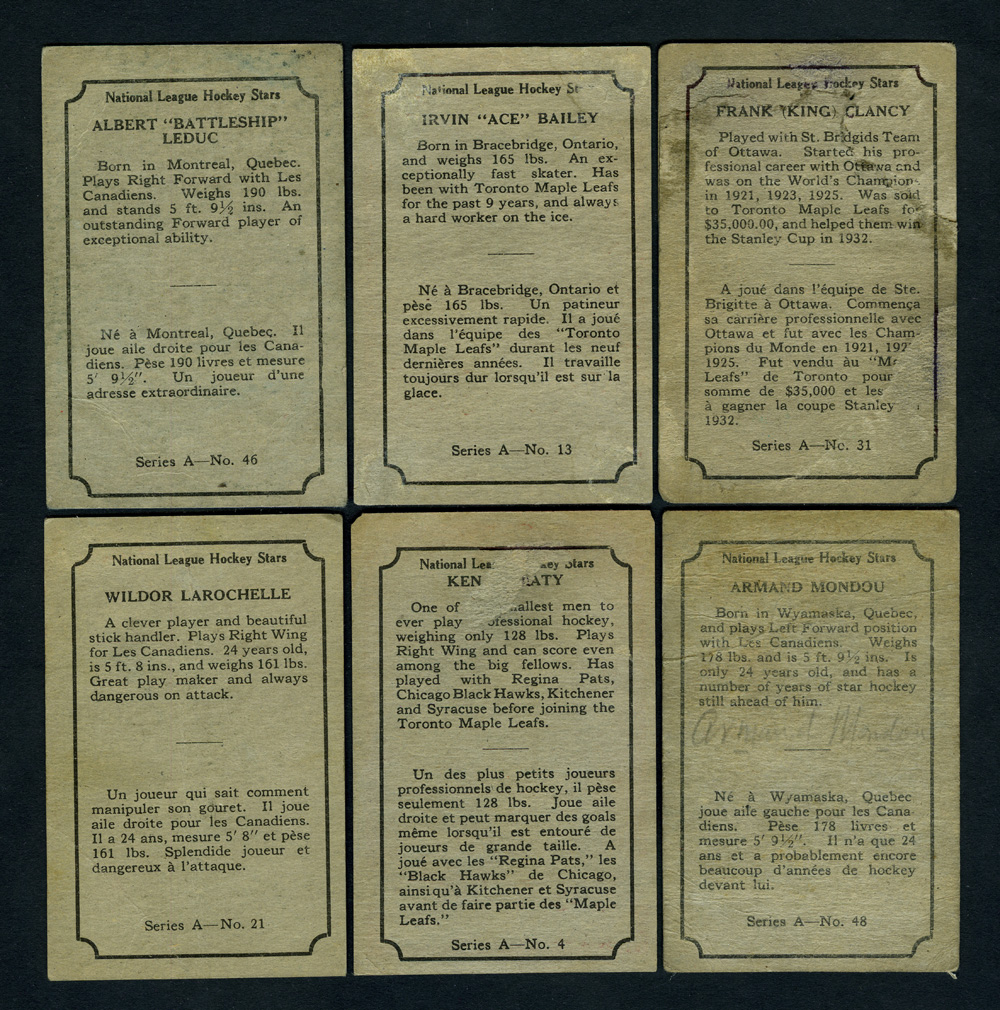 National League Hockey Stars
ALBERT "BATTLESHIP"
LEDUC
Born in Montreal, Quebec.
Plays Right Forward with Les
Canadiens. Weighs 190 lbs.
and stands 5 ft. 9½ ins. An
outstanding Forward player of
exceptional ability.
Né à Montreal, Quebec. Il
joue aile droite pour les Cana-
diens. Pèse 190 livres et mesure
5' 9½". Un joueur d'une
adresse extraordinaire.
Series A—No. 46
National League Hockey
IRVIN "ACE" BAILEY
Born in Bracebridge, Ontario,
and weighs 165 lbs. An ex-
ceptionally fast skater. Has
been with Toronto Maple Leafs
for the past 9 years, and always
a hard worker on the ice.
Né à Bracebridge, Ontario et
pèse 165 lbs. Un patineur
excessivement rapide. Il a joué
dans l'équipe des "Toronto
Maple Leafs" durant les neuf
dernières années. Il travaille
toujours dur lorsqu'il est sur la
glace.
Series A—No. 13
National League Hockey Stars
FRANK (KING) CLANCY
Played with St. Bridgids Team
of Ottawa. Started his pro-
fessional career with Ottawa and
was on the World's Champion-
in 1921, 1923, 1925. Was sold
to Toronto Maple Leafs for
$35,000.00, and helped them win
the Stanley Cup in 1932.
A joué dans l'équipe de Ste.
Brigitte à Ottawa. Commença
sa carrière professionnelle avec
Ottawa et fut avec les Cham-
pions du Monde en 1921,
1925. Fut vendu àu
Leafs" de Toronto pour
somme de $35,000 et les
à gagner la coupe Stanley
1932.
Series A—No. 31
National League Hockey Stars
WILDOR LAROCHELLE
A clever player and beautiful
stick handler. Plays Right Wing
for Les Canadiens. 24 years old,
is 5 ft. 8 ins., and weighs 161 lbs.
Great play maker and always
dangerous on attack.
Un joueur qui sait comment
manipuler son gouret. Il joue
aile droite pour les Canadiens.
Il a 24 ans, mesure 5' 8" et pèse
161 lbs. Splendide joueur et
dangereux à l'attaque.
Series A—No. 21
National Stars
KEN
One of men to
ever play professional hockey,
weighing only 128 lbs. Plays
Right Wing and can score even
among the big fellows. Has
played with Regina Pats,
Chicago Black Hawks, Kitchener
and Syracuse before joining the
Toronto Maple Leafs.
Un des plus petits joueurs
professionnels de hockey, il pèse
seulement 128 lbs. Joue aile
droite et peut marquer des goals
même lorsqu'il est entouré de
joueurs de grande taille. A
joué avec les "Regina Pats," les
"Black Hawks" de Chicago,
ainsi qu'à Kitchener et Syracuse
avant de faire partie des "Maple
Leafs."
Series A—No. 4
National League Hockey Stars
ARMAND MONDOU
Born in Wyamaska, Quebec,
and plays Left Forward position
with Les Canadiens. Weighs
178 lbs. and is 5 ft. 9½ ins. Is
only 24 years old, and has a
number of years of star hockey
still ahead of him.
Armand Mondou
Né à Wyamaska, Quebec
joue aile gauche pour les Cana-
diens. Pèse 178 livres et
mesure 5' 9½". Il n'a que 24
ans et a probablement encore
beaucoup d'années de hockey
devant lui.
Series A—No. 48